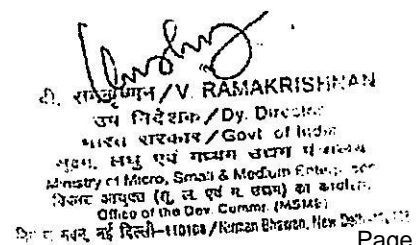 वी. रामकृष्णन/V. RAMAKRISHNAN
उप निदेशक/Dy. Director
भारत सरकार/Govt of India
सूक्ष्म, लघु एवं मध्यम उद्यम मंत्रालय
Ministry of Micro, Small & Medium
विकास आयुक्त (सू. ल. एवं म. उद्यम) का कार्यालय
Office of the Dev. Commr. (MSME)
भवन, नई दिल्ली-110108/Nirman Bhawan, New Delhi-
Page